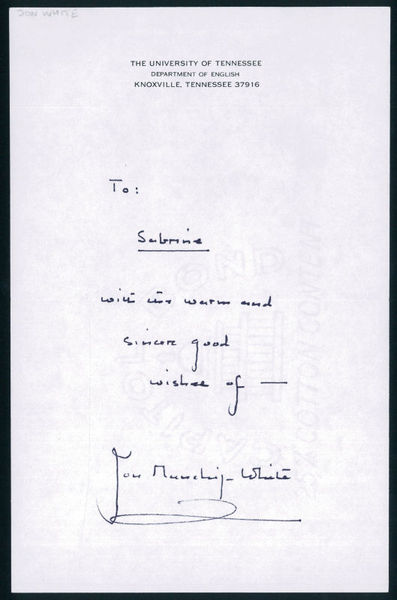 JON WHITE
THE UNIVERSITY OF TENNESSEE
DEPARTMENT OF ENGLISH
KNOXVILLE, TENNESSEE 37916
To:
Sabrina
with the warm and
sincere good
wishes of —
Jon Manchip-White
25% COTTON CONTENT
BOND